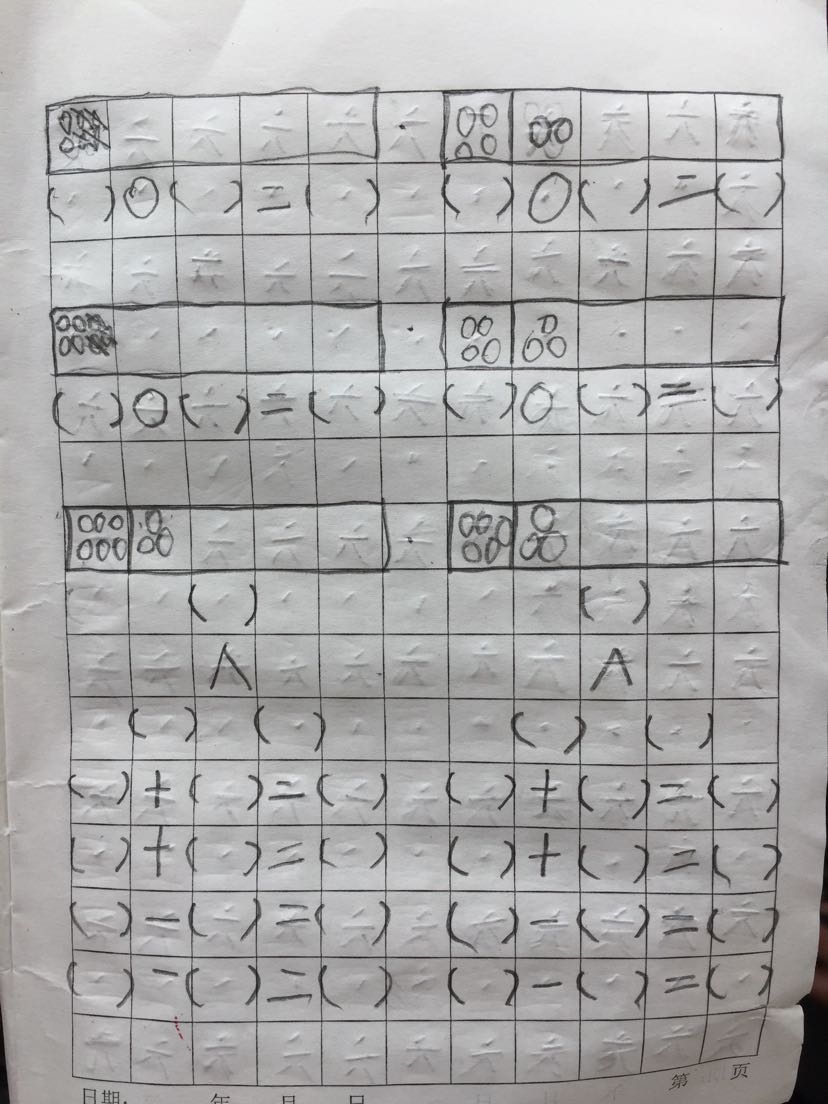 ( ) ○ ( ) = ( ) ( ) ○ ( ) = ( )
( ) ○ ( ) = ( ) ( ) ○ ( ) = ( )
( ) ( )
∧ ∧
( ) ( ) ( ) ( )
( ) + ( ) = ( ) ( ) + ( ) = ( )
( ) + ( ) = ( ) ( ) + ( ) = ( )
( ) - ( ) = ( ) ( ) - ( ) = ( )
( ) - ( ) = ( ) ( ) - ( ) = ( )
第 页
日期: 年 月 日